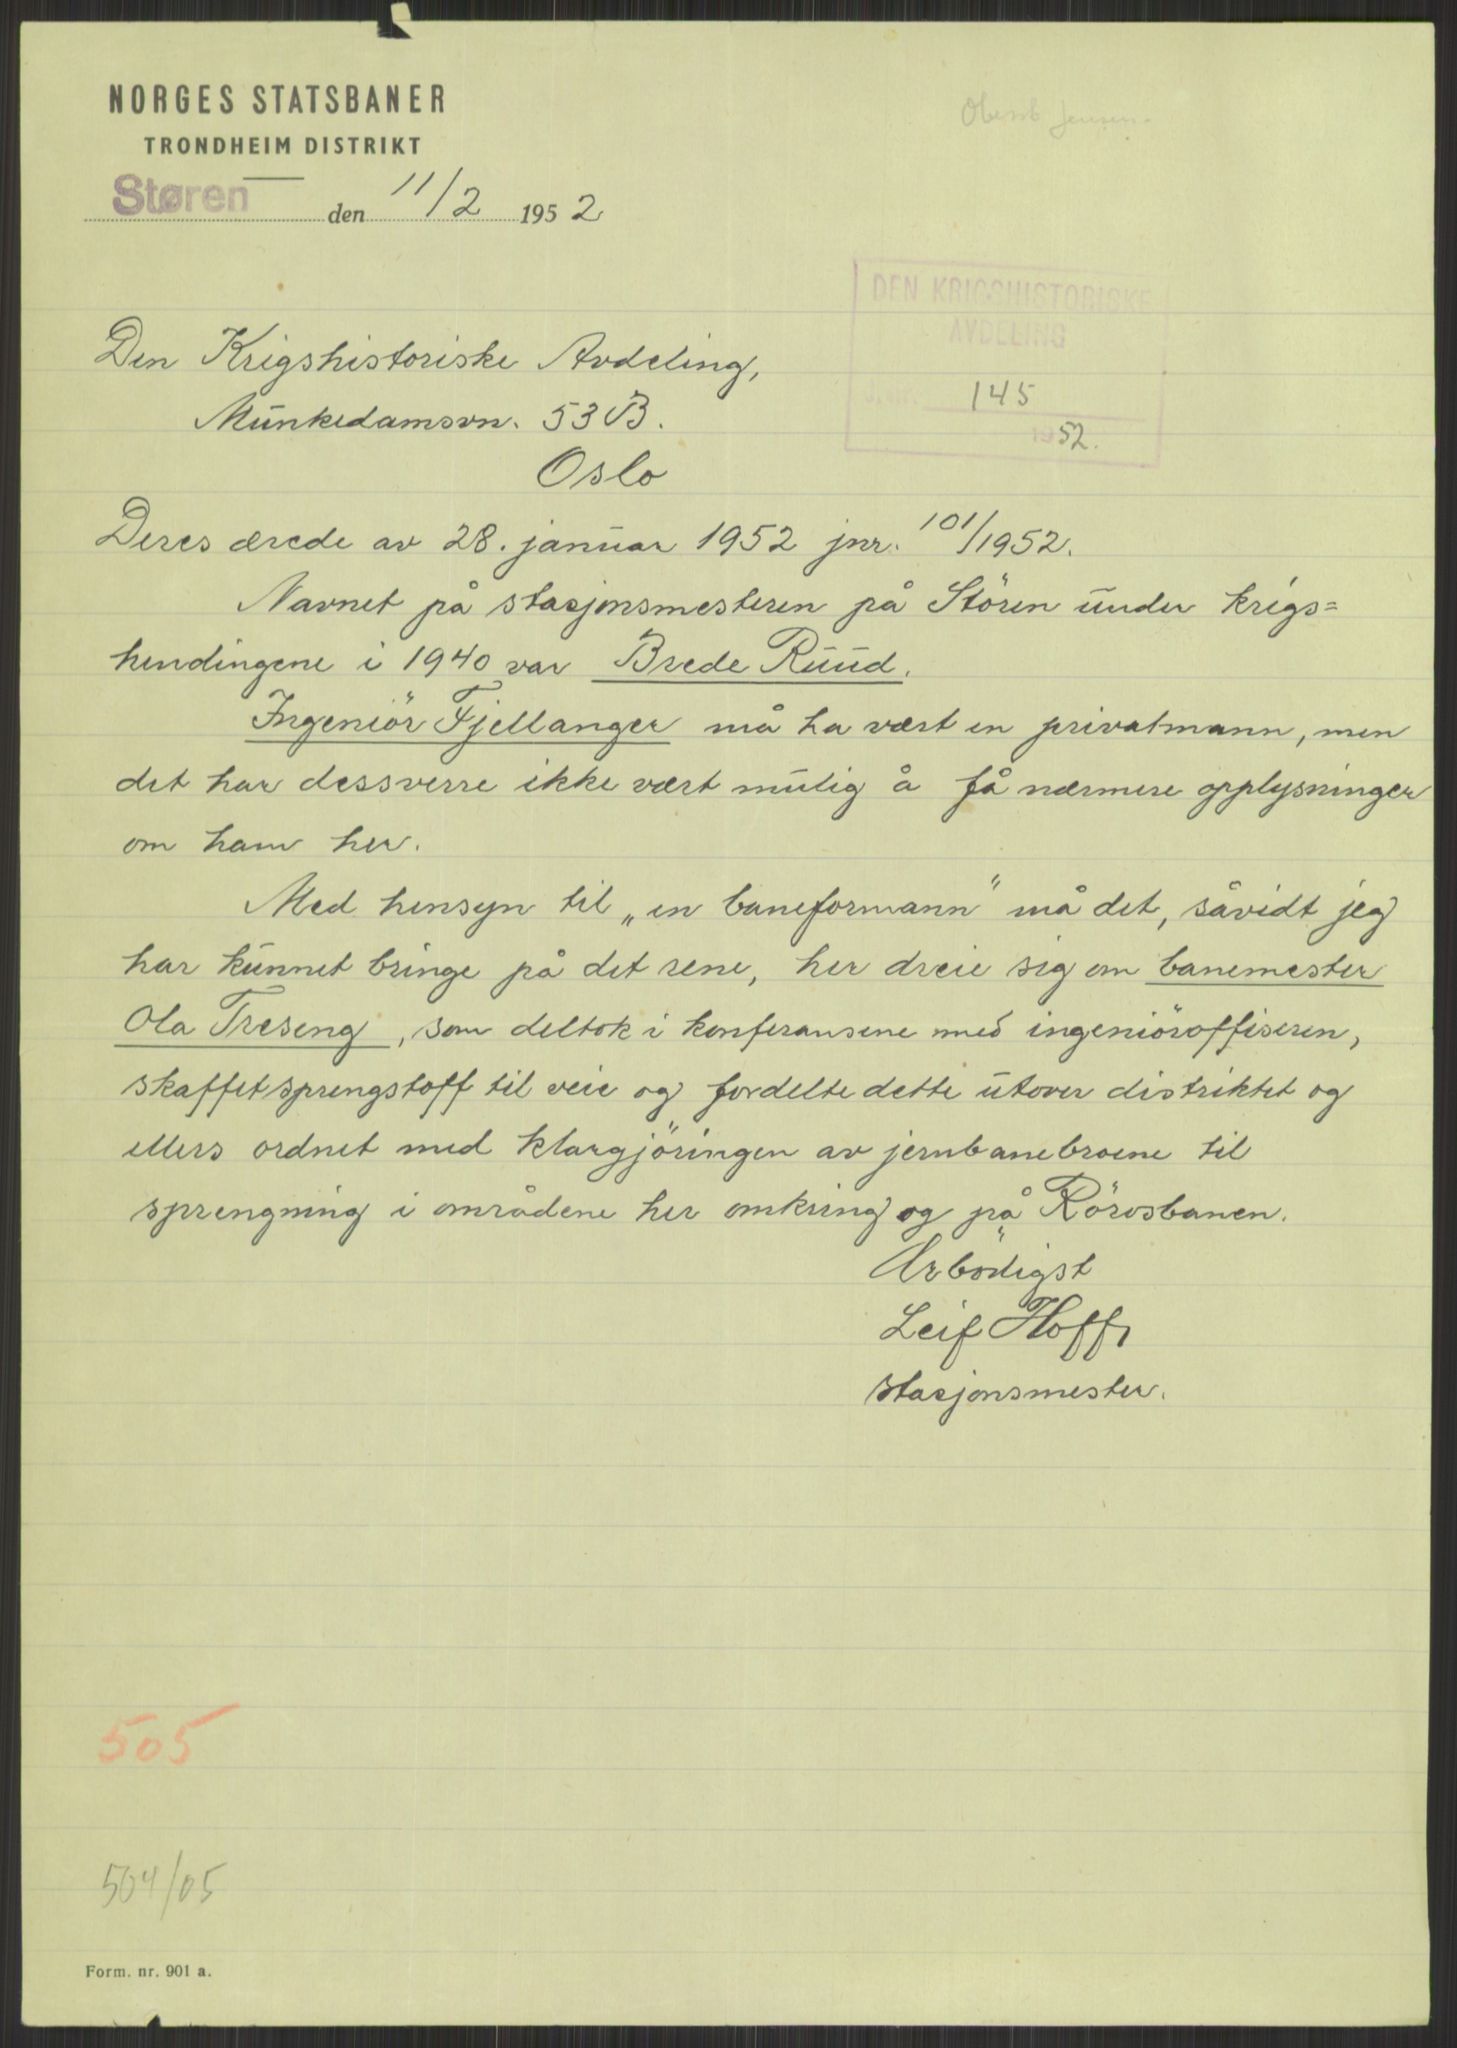 NORGES STATSBANER
TRONDHEIM DISTRIKT
Støren den 11/2 1952
DEN KRIGSHISTORISKE
AVDELING
J.nr. 145
1952.
Den Krigshistoriske Avdeling,
Munkedamsvn. 53 B.
Oslo
Deres ærede av 28. januar 1952 jnr. 101/1952.
Navnet på stasjonsmesteren på Stören under krigs=
hendingene i 1940 var Brede Ruud.
Ingeniör Fjellanger må ha vært en privatmann, men
det har dessverre ikke vært mulig å få nærmere opplysninger
om ham her.
Med hensyn til „en baneformann" må det, såvidt jeg
har kunnet bringe på det rene, her dreie sig om banemester
Ola Treseng, som deltok i konferansene med ingeniöroffiseren,
skaffet sprengstoff til veie og fordelte dette utover distriktet og
ellers ordnet med klargjöringen av jernbanebroene til
sprengning i områdene her omkring og på Rörosbanen.
Ærbödigst
Leif Hoff
stasjonsmester.
505
504/05
Form. nr. 901 a.